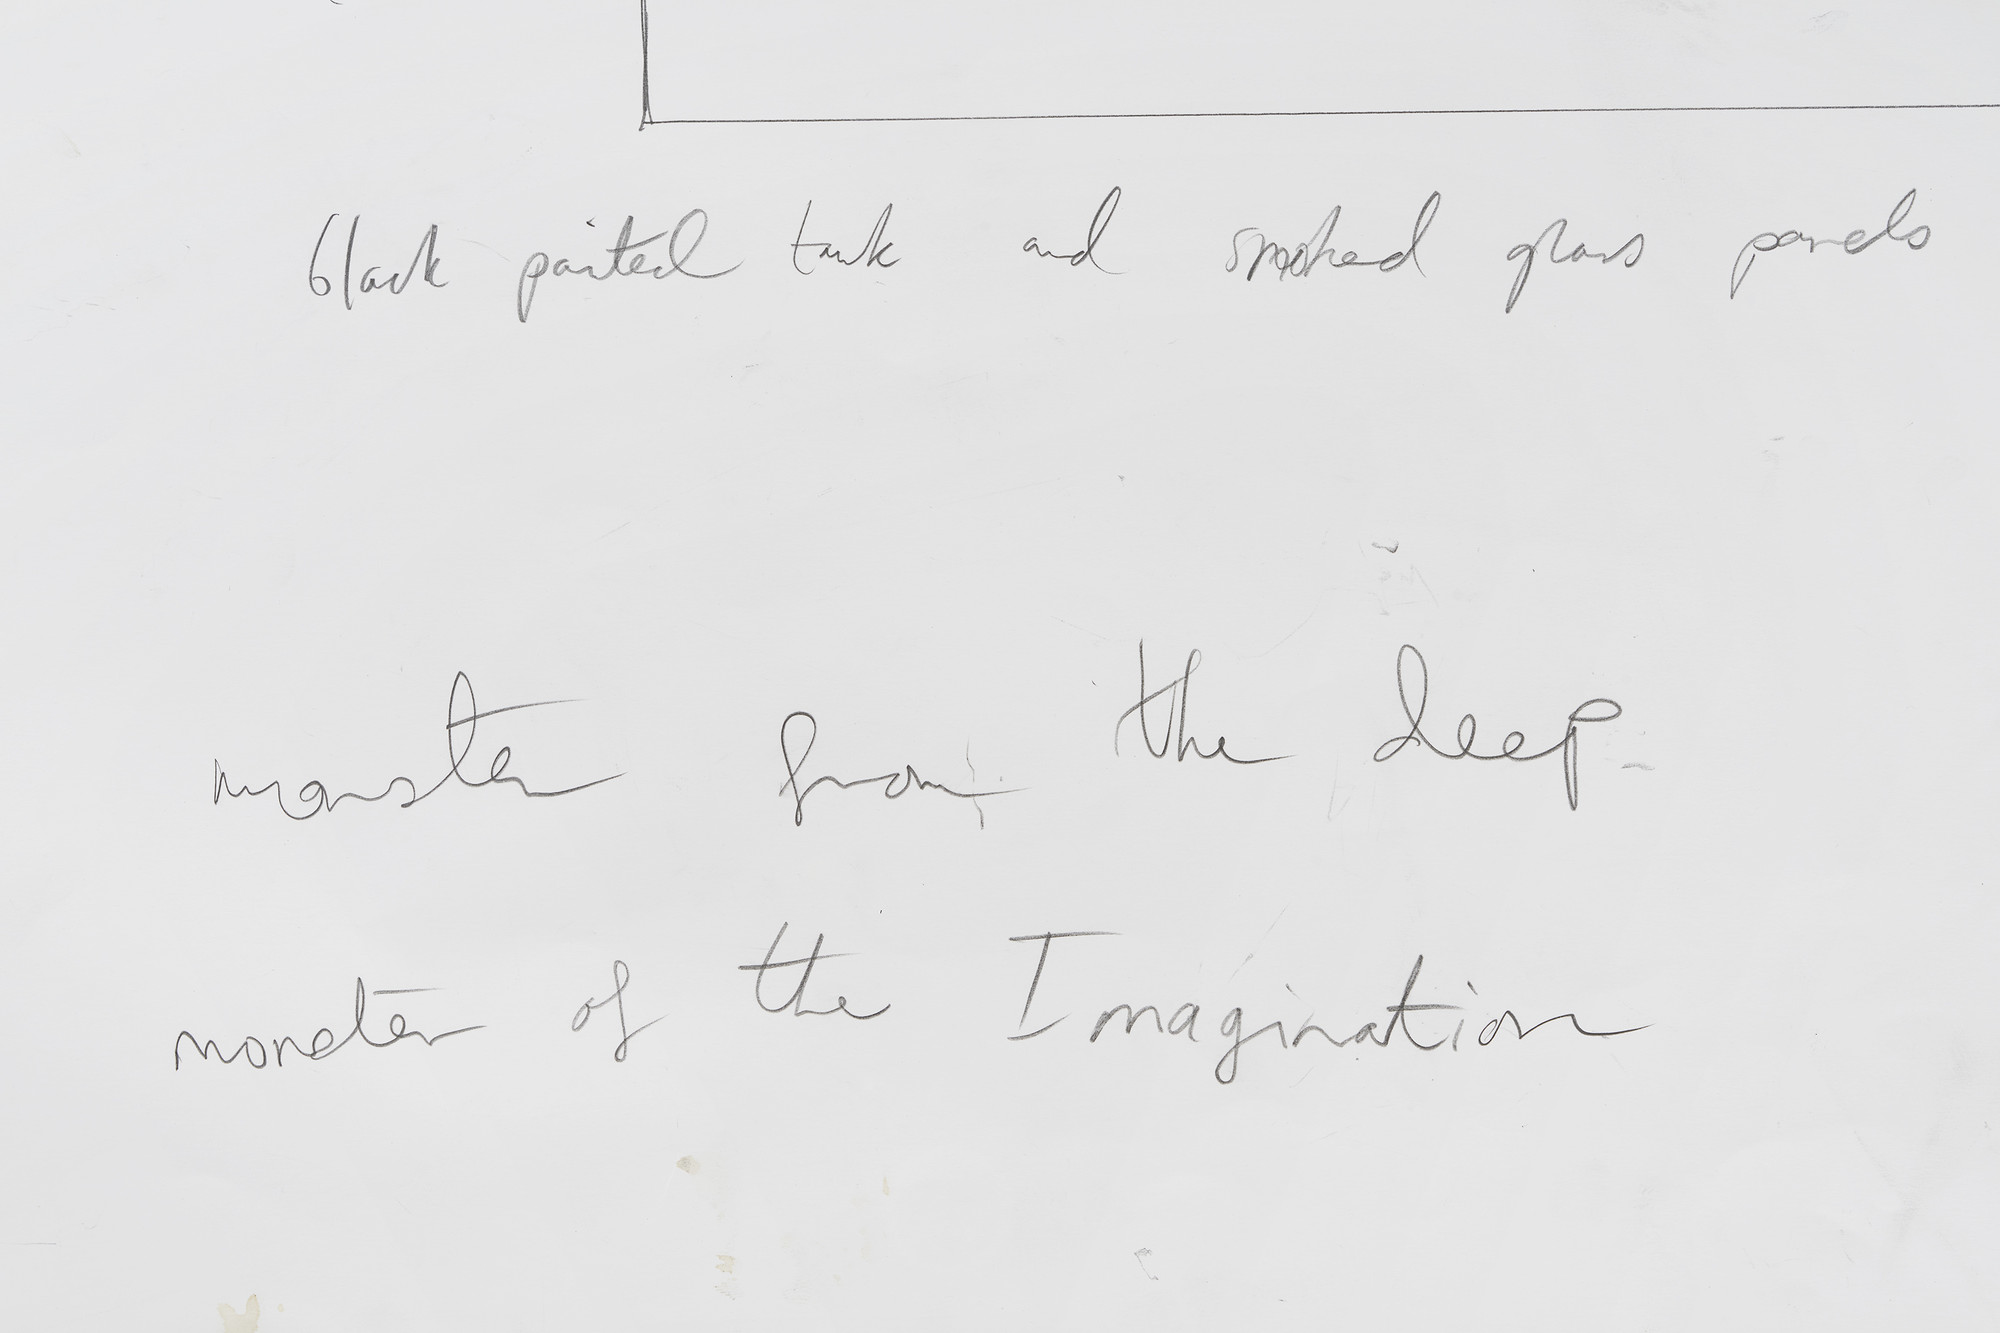 black painted tank and smoked glass panels
monster from the deep-
monster of the Imagination